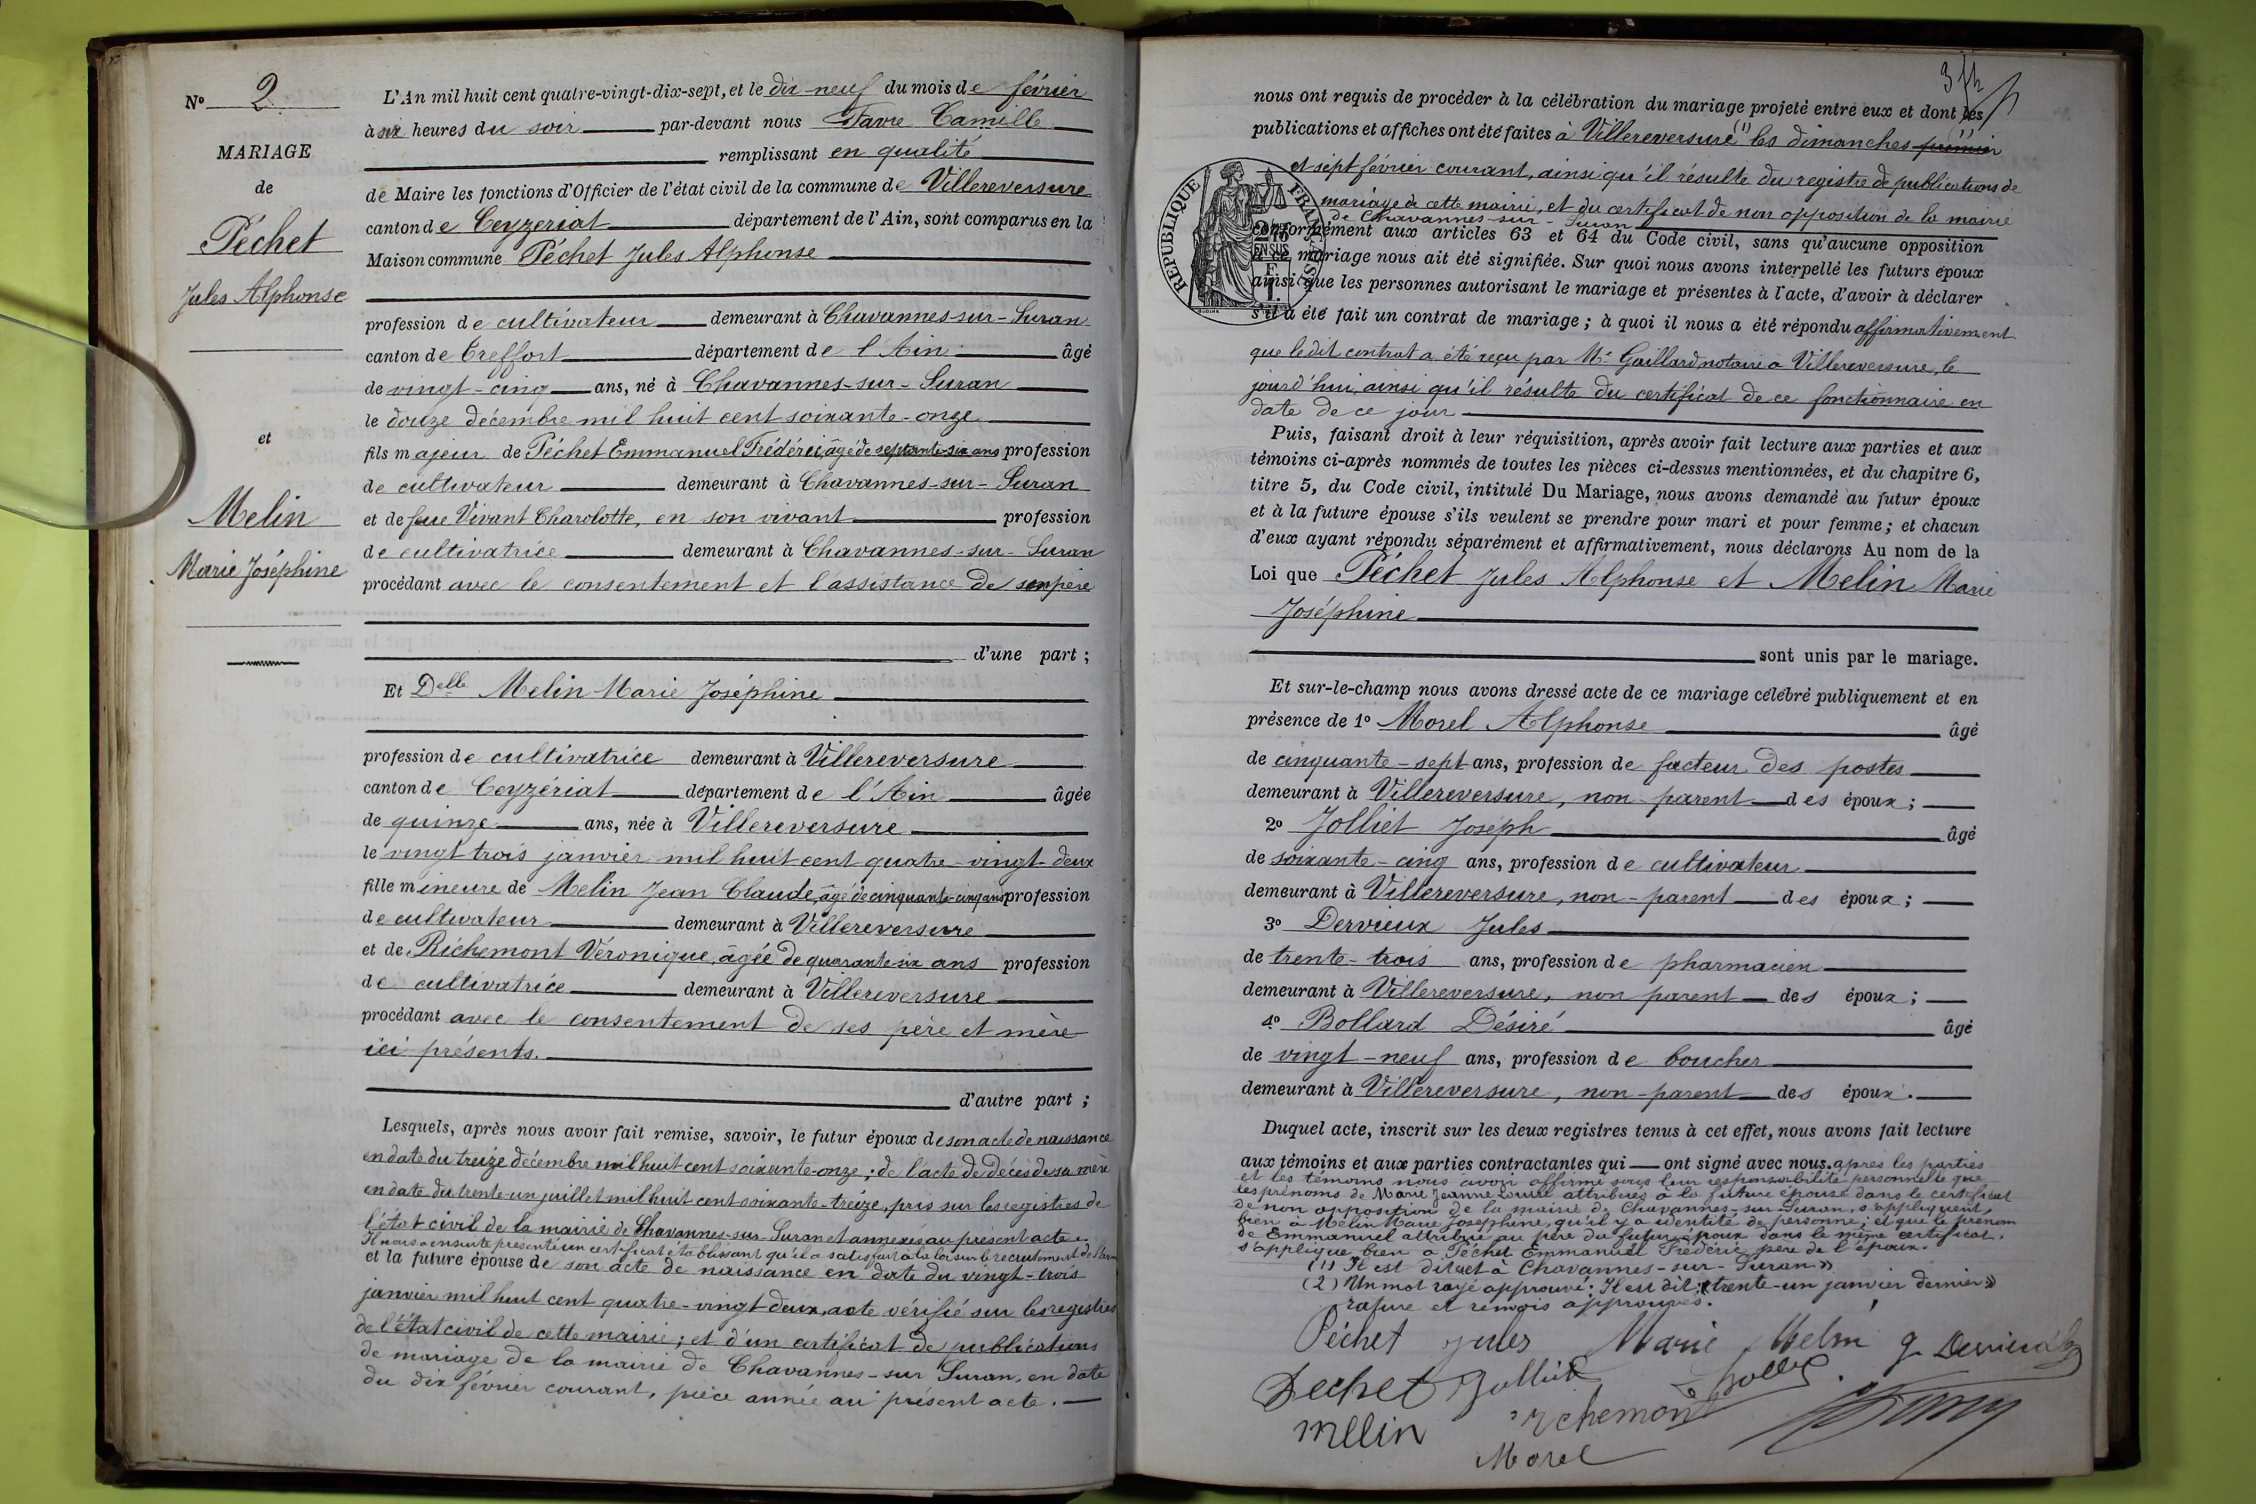 N° 2
MARIAGE
de
Péchet
Jules Alphonse
et
Melin
Marie Joséphine
L'An mil huit cent quatre-vingt-dix-sept, et le dix-neuf du mois de février
à six heures du soir par-devant nous Favre Camille
remplissant en qualité
de Maire les fonctions d'Officier de l'état civil de la commune de Villereversure
canton de Ceyzeriat département de l'Ain, sont comparus en la
Maison commune Péchet Jules Alphonse
profession de cultivateur demeurant à Chavannes-sur-Suran
canton de Treffort département de l'Ain âgé
de vingt-cinq ans, né à Chavannes-sur-Suran
le douze décembre mil huit cent soixante-onze
fils majeur de Péchet Emmanuel Frédéric, âgé de septante-six ans profession
de cultivateur demeurant à Chavannes-sur-Suran
et de feue Vivant Charolotte, en son vivant profession
de cultivatrice demeurant à Chavannes-sur-Suran
procédant avec le consentement et l'assistance de son père
d'une part ;
Et Delle Melin Marie Joséphine
profession de cultivatrice demeurant à Villereversure
canton de Ceyzériat département de l'Ain âgée
de quinze ans, née à Villereversure
le vingt trois janvier mil huit cent quatre-vingt-deux
fille mineure de Melin Jean Claude, âgé de cinquante-cinq ans profession
de cultivateur demeurant à Villereversure
et de Richemont Véronique, âgée de quarante six ans profession
de cultivatrice demeurant à Villereversure
procédant avec le consentement de ses père et mère
ici présents.
d'autre part ;
Lesquels, après nous avoir fait remise, savoir, le futur époux de son acte de naissance
en date du treize décembre mil huit cent soixante-onze ; de l'acte de décès de sa mère
en date du trente un juillet mil huit cent soixante-treize, pris sur les registres de
l'état civil de la mairie de Chavannes-sur-Suran et annexés au présent acte.
Il nous a ensuite présenté un certificat établissant qu'il a satisfait à la loi sur le recrutement de l'armée
et la future épouse de son acte de naissance en date du vingt-trois
janvier mil huit cent quatre-vingt-deux, acte vérifié sur les registres
de l'état civil de cette mairie ; et d'un certificat de publications
de mariage de la mairie de Chavannes-sur Suran, en date
du dix février courant, pièce année au présent acte.
nous ont requis de procéder à la célébration du mariage projeté entre eux et dont les
publications et affiches ont été faites à Villereversure (1) les dimanches premier
et sept février courant, ainsi qu'il résulte du registre de publications de
mariage de cette mairie, et du certificat de non opposition de la mairie
de Chavannes-sur-Suran
RÉPUBLIQUE FRANÇAISE
conformément aux articles 63 et 64 du Code civil, sans qu'aucune opposition
à ce mariage nous ait été signifiée. Sur quoi nous avons interpellé les futurs époux
ainsi que les personnes autorisant le mariage et présentes à l'acte, d'avoir à déclarer
s'il a été fait un contrat de mariage ; à quoi il nous a été répondu affirmativement
que le dit contrat a été reçu par Me Gaillard notaire à Villereversure, le
jourd'hui, ainsi qu'il résulte du certificat de ce fonctionnaire en
date de ce jour
Puis, faisant droit à leur réquisition, après avoir fait lecture aux parties et aux
témoins ci-après nommés de toutes les pièces ci-dessus mentionnées, et du chapitre 6,
titre 5, du Code civil, intitulé Du Mariage, nous avons demandé au futur époux
et à la future épouse s'ils veulent se prendre pour mari et pour femme ; et chacun
d'eux ayant répondu séparément et affirmativement, nous déclarons Au nom de la
Loi que Péchet Jules Alphonse et Melin Marie
Joséphine
sont unis par le mariage.
Et sur-le-champ nous avons dressé acte de ce mariage célébré publiquement et en
présence de 1° Morel Alphonse âgé
de cinquante-sept ans, profession de facteur des postes
demeurant à Villereversure, non parent des époux ;
2° Jolliet Joseph âgé
de soixante-cinq ans, profession de cultivateur
demeurant à Villereversure, non-parent des époux ;
3° Dervieux Jules
de trente-trois ans, profession de pharmacien
demeurant à Villereversure, non parent des époux ;
4° Bollard Désiré âgé
de vingt-neuf ans, profession de boucher
demeurant à Villereversure, non-parent des époux.
Duquel acte, inscrit sur les deux registres tenus à cet effet, nous avons fait lecture
aux témoins et aux parties contractantes qui ont signé avec nous. après les parties
et les témoins nous avoir affirmé sous leur responsabilité personnelle que
les prénoms de Marie Jeanne Louise attribués à la future épouse dans le certificat
de non opposition de la mairie de Chavannes-sur-Suran, s'appliquent
bien à Melin Marie Joséphine, qu'il y a identité de personne ; et que le prénom
de Emmanuel attribué au père du futur époux dans le même certificat,
s'applique bien à Péchet Emmanuel Frédéric père de l'époux.
(1) Il est dit et à Chavannes-sur-Suran »
(2) Un mot rayé approuvé. Il est dit : « trente-un janvier dernier »
rature et renvois approuvés.
Péchet Jules Marie Melin J. Dervieux
Pechet Jolliet
Mellin Richemont
Morel